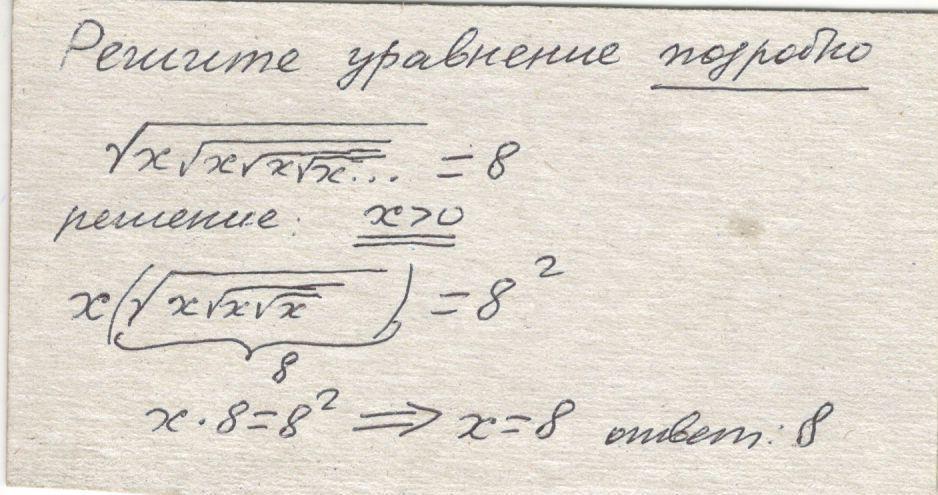 Решите уравнение подробно
√(x√(x√(x√(x...)))) = 8
решение: x>0
x(√(x√(x√x))) = 8²
8
x·8=8² ⟹ x=8 ответ: 8